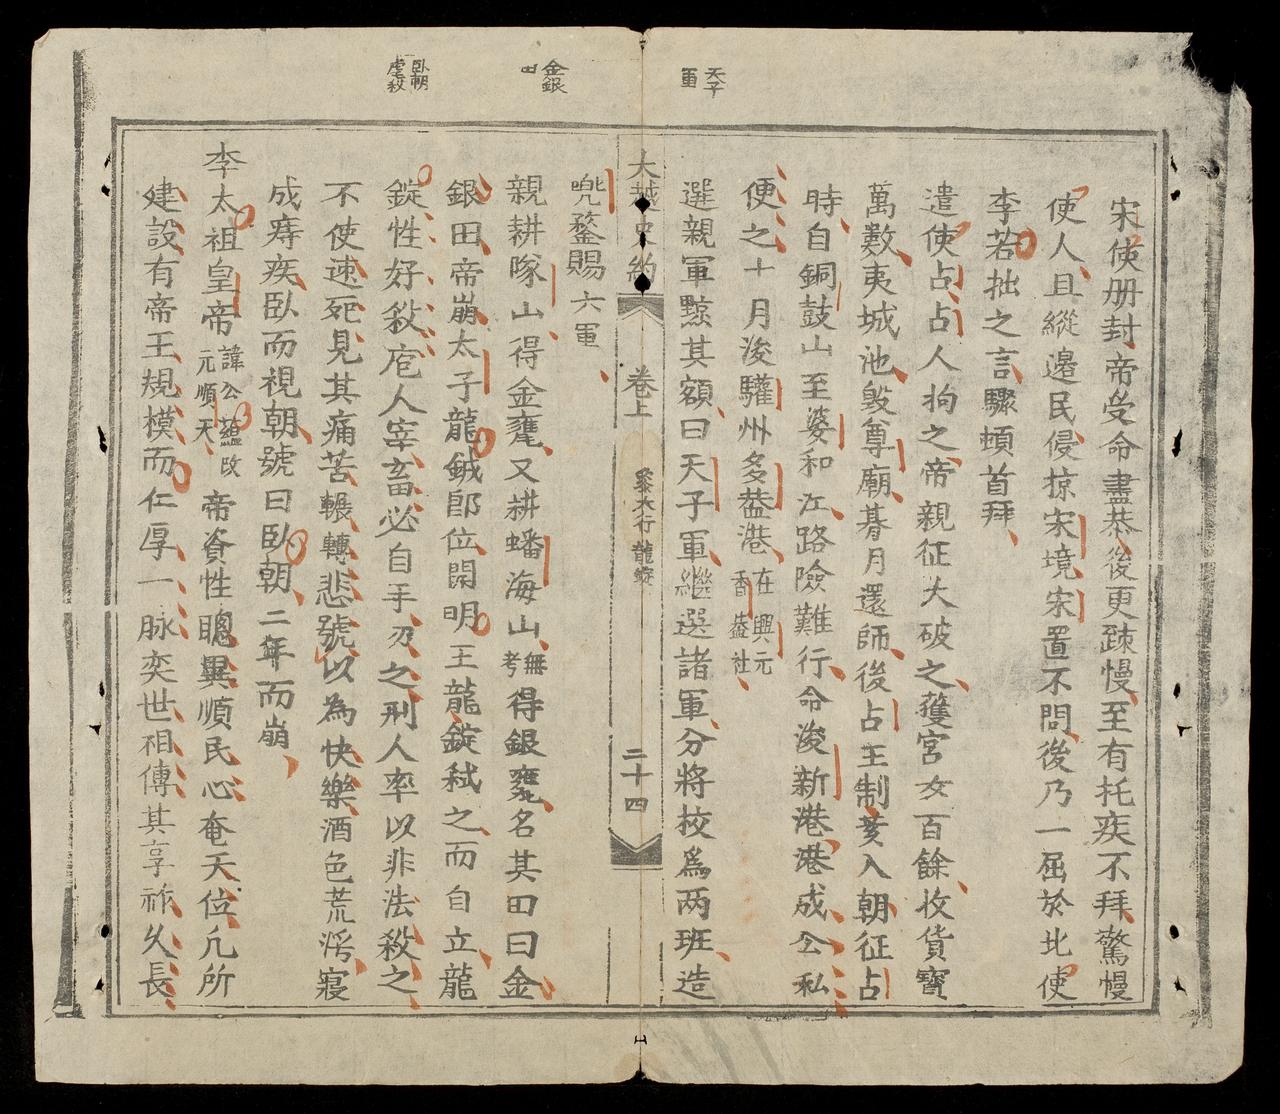 天子
軍
宋使册封帝受命盡恭後更踈慢至有托疾不拜驁慢
使人且縱邊民侵掠宋境宋置不問後乃一屈於北使
李若拙之言驟頓首拜
遣使占占人拘之帝親征大破之獲宮女百餘收貨寶
萬數夷城池毀尊廟朞月還師後占主制荽入朝征占
時自銅鼓山至婆和江路險難行命浚新港港成公私
便之十月浚驩州多葢港在興元香葢社
選親軍黥其額曰天子軍繼選諸軍分將校爲两班造
大越史約 卷上 黎大行 龍錠 二十四
金銀
田
卧朝
虐殺
兠鍪賜六軍
親耕隊山得金甕又耕蟠海山無考得銀甕名其田曰金
銀田帝崩太子龍鉞即位開明王龍錠弒之而自立龍
錠性好殺庖人宰畜必自手刃之刑人率以非法殺之
不使速死見其痛苦輾轉悲號以為快樂酒色荒淫寢
成痔疾卧而視朝號曰卧朝二年而崩
李太祖皇帝諱公蘊改元順天帝資性聰異順民心奄天位凢所
建設有帝王規模而仁厚一脉奕世相傳其享祚久長